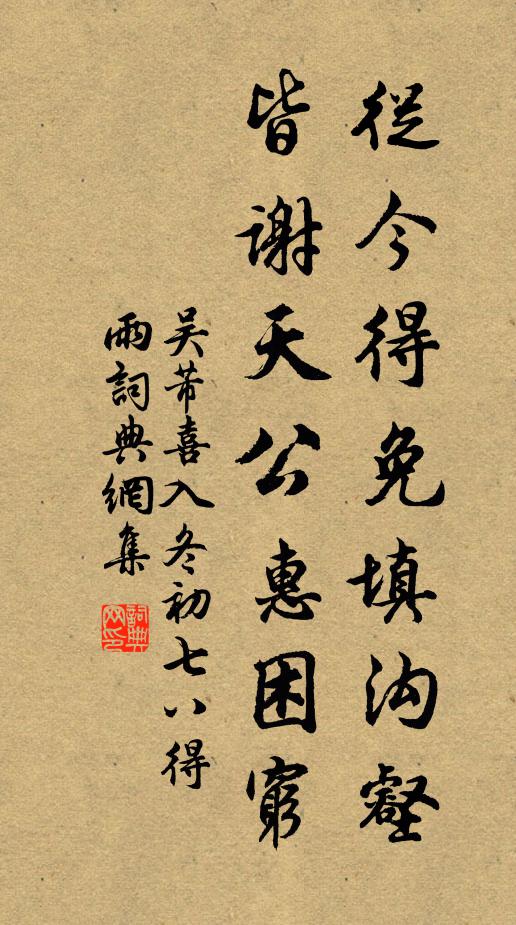 從今得免填沟壑
皆謝天公惠困窮
吴芾喜入冬初七八得
雨詞典網集
詞典
网印